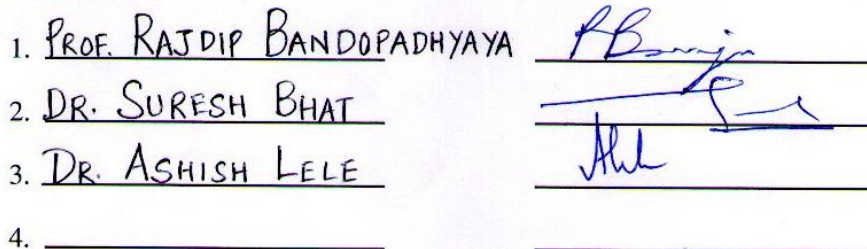 1. PROF. RAJDIP BANDOPADHYAYA
2. DR. SURESH BHAT
3. DR. ASHISH LELE
4.